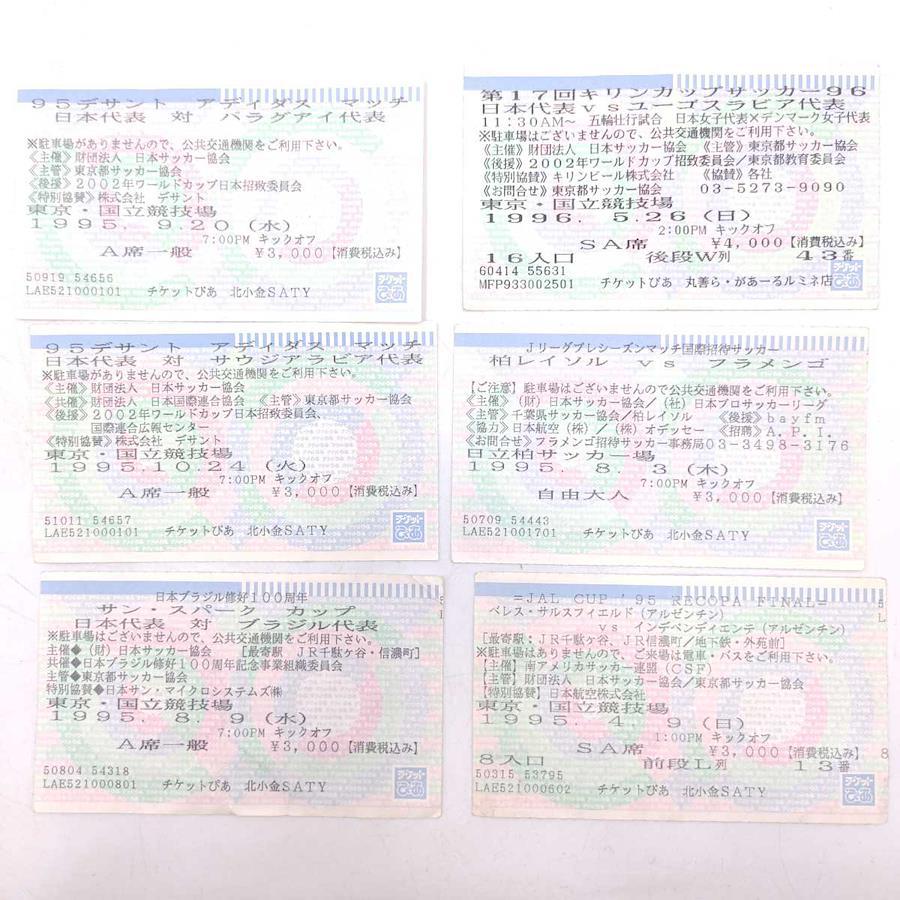 95デサント アディダス マッチ
日本代表 対 パラグアイ代表
※駐車場がありませんので、公共交通機関をご利用下さい。
《主催》財団法人 日本サッカー協会
《主管》東京都サッカー協会
《後援》2002年ワールドカップ日本招致委員会
《特別協賛》株式会社 デサント
東京・国立競技場
1995. 9.20(水)
7:00PM キックオフ
A席一般 ¥3,000【消費税込み】
50919 54656
LAE521000101 チケットぴあ 北小金SATY
チケットぴあ
第17回キリンカップサッカー96
日本代表vsユーゴスラビア代表
11:30AM~ 五輪壮行試合 日本女子代表×デンマーク女子代表
※駐車場はございませんので、公共交通機関をご利用下さい。
《主催》財団法人 日本サッカー協会 《主管》東京都サッカー協会
《後援》2002年ワールドカップ招致委員会/東京都教育委員会
《特別協賛》キリンビール株式会社 《協賛》各社
《お問合せ》東京都サッカー協会 03-5273-9090
東京・国立競技場
1996. 5.26(日)
2:00PM キックオフ
SA席 ¥4,000【消費税込み】
16入口 後段W列 43番
60414 55631
MFP933002501 チケットぴあ 丸善ら・があーるルミネ店
チケットぴあ
95デサント アディダス マッチ
日本代表 対 サウジアラビア代表
※駐車場がありませんので、公共交通機関をご利用下さい。
《主催》財団法人 日本サッカー協会
《共催》財団法人 日本国際連合協会 《主管》東京都サッカー協会
《後援》2002年ワールドカップ日本招致委員会、
国際連合広報センター
《特別協賛》株式会社 デサント
東京・国立競技場
1995.10.24(火)
7:00PM キックオフ
A席一般 ¥3,000【消費税込み】
51011 54657
LAE521000101 チケットぴあ 北小金SATY
チケットぴあ
Jリーグプレシーズンマッチ国際招待サッカー
柏レイソル vs フラメンゴ
【ご注意】駐車場はございませんので公共交通機関をご利用下さい。
《主催》(財)日本サッカー協会/(社)日本プロサッカーリーグ
《主管》千葉県サッカー協会/柏レイソル 《後援》bayfm
《協力》日本航空(株)/(株)オデッセー 《招聘》A.P.I.
《お問合せ》フラメンゴ招待サッカー事務局03-3498-3176
日立柏サッカー場
1995. 8. 3(木)
7:00PM キックオフ
自由大人 ¥3,000【消費税込み】
50709 54443
LAE521001701 チケットぴあ 北小金SATY
チケットぴあ
日本ブラジル修好100周年
サン・スパーク カップ
日本代表 対 ブラジル代表
※駐車場はございませんので、公共交通機関をご利用下さい。
主催◆(財)日本サッカー協会 [最寄駅 JR千駄ヶ谷・信濃町]
共催◆日本ブラジル修好100周年記念事業組織委員会
主管◆東京都サッカー協会
特別協賛◆日本サン・マイクロシステムズ㈱
東京・国立競技場
1995. 8. 9(水)
7:00PM キックオフ
A席一般 ¥3,000【消費税込み】
50804 54318
LAE521000801 チケットぴあ 北小金SATY
チケットぴあ
=JAL CUP '95 RECOPA FINAL=
ベレス・サルスフィエルド(アルゼンチン)
vs インデペンディエンテ(アルゼンチン)
[最寄駅:JR千駄ヶ谷、JR信濃町/地下鉄・外苑前]
※駐車場はありませんので、ご来場は電車・バスをご利用下さい。
【主催】南アメリカサッカー連盟(CSF)
【主管】財団法人 日本サッカー協会/東京都サッカー協会
【特別協賛】日本航空株式会社
東京・国立競技場
1995. 4. 9(日)
1:00PM キックオフ
SA席 ¥3,000【消費税込み】
8入口 前段L列 13番
50315 53795
LAE521000602 チケットぴあ 北小金SATY
チケットぴあ